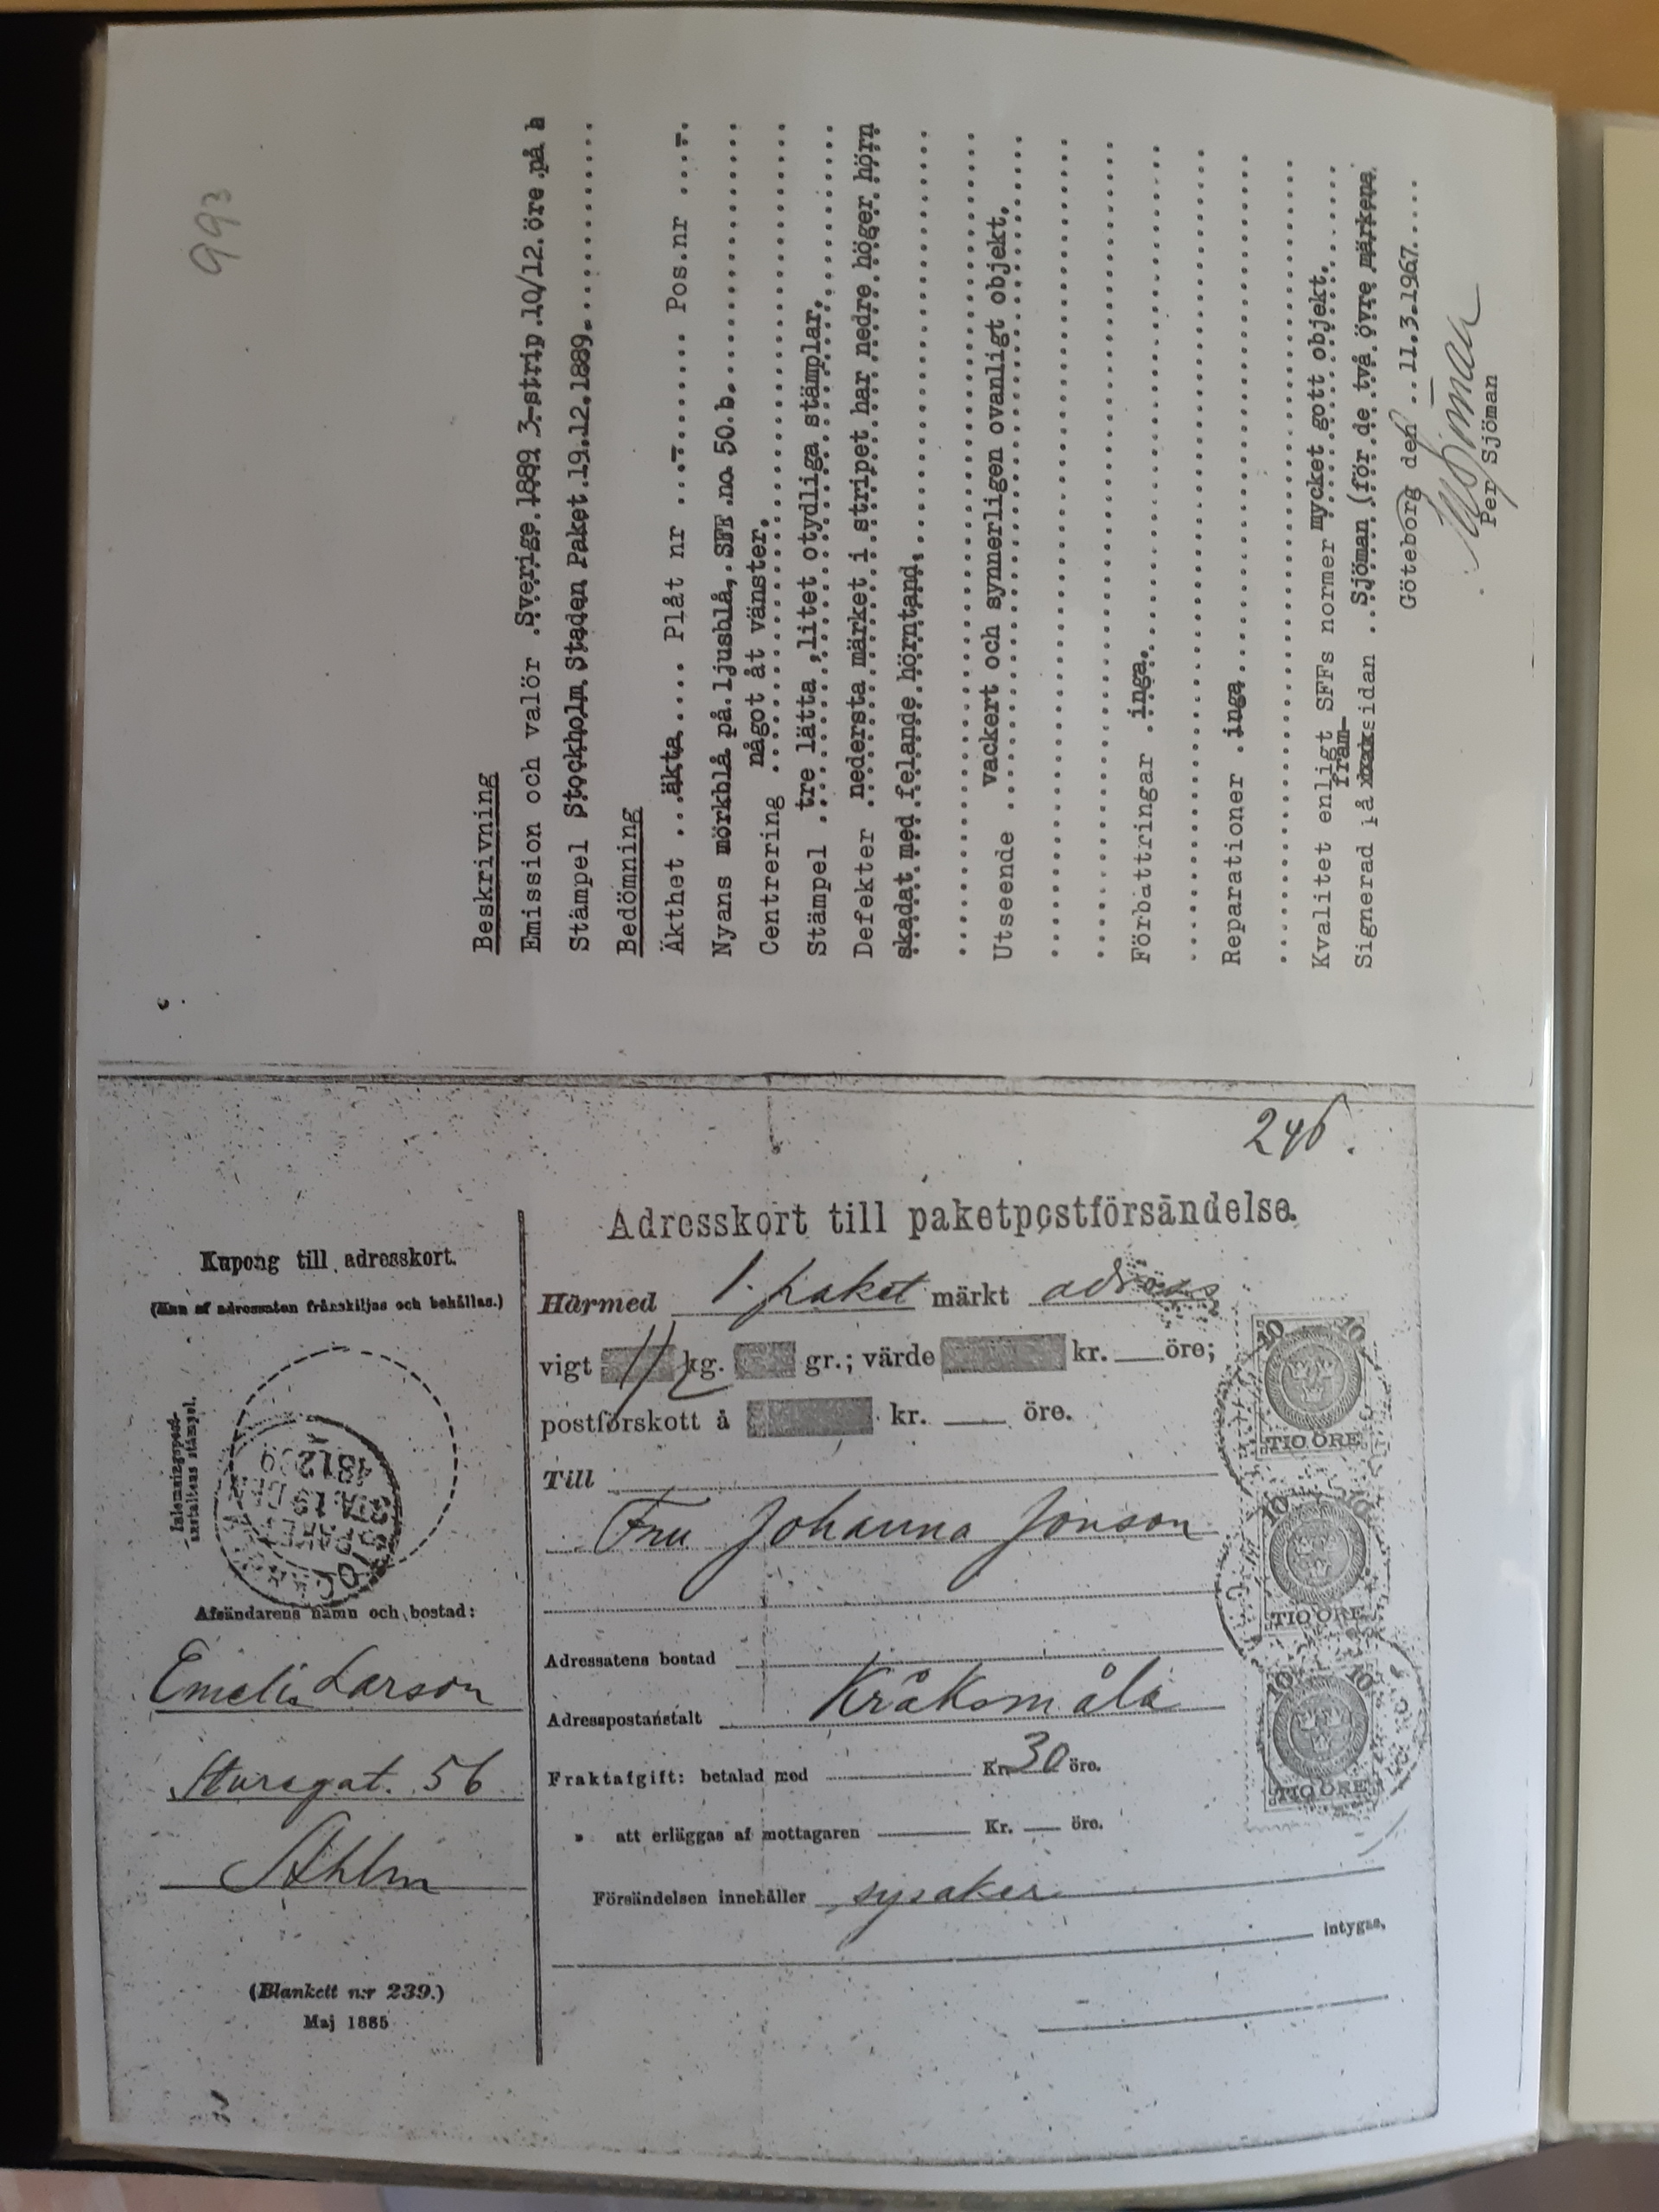 993
Beskrivning
Emission och valör .Sverige.1889 3-strip.10/12.öre.på b
Stämpel Stockholm Staden Paket.19.12.1889.
Bedömning
Äkthet ...äkta.... Plåt nr ...-....... Pos.nr ...-.
Nyans mörkblå på ljusblå, SFF no 50 b.
Centrering något åt vänster.
Stämpel .tre lätta ,litet otydliga stämplar.
Defekter ..nedersta märket i stripet har nedre höger hörn
skadat med felande hörntand.
Utseende ..vackert och synnerligen ovanligt objekt.
Förbättringar .inga.
Reparationer .inga
Kvalitet enligt SFFs normer mycket gott objekt.
fram-
Signerad på sidan ..Sjöman (för de två övre märkena.
Göteborg den ..11.3.1967.....
Per Sjöman
246.
Adresskort till paketpostförsändelse.
Härmed 1. paket märkt adress
vigt 1/2 kg. gr.; värde kr. öre;
postförskott å kr. öre.
Till
Fru Johanna Jonson
Adressatens bostad
Adresspostanstalt Kråksmåla
Fraktafgift: betalad med Kr. 30 öre.
» att erläggas af mottagaren Kr. öre.
Försändelsen innehåller sysaker
intygas,
Kupong till adresskort.
(Kan af adressaten frånskiljas och behållas.)
Inlemningspost-
anstaltens stämpel.
Afsändarens namn och bostad:
Emeli Larson
Sturegat. 56
Sthlm
(Blankett n:r 239.)
Maj 1885
10 10
TIO ÖRE
10 10
TIO ÖRE
10 10
TIO ÖRE